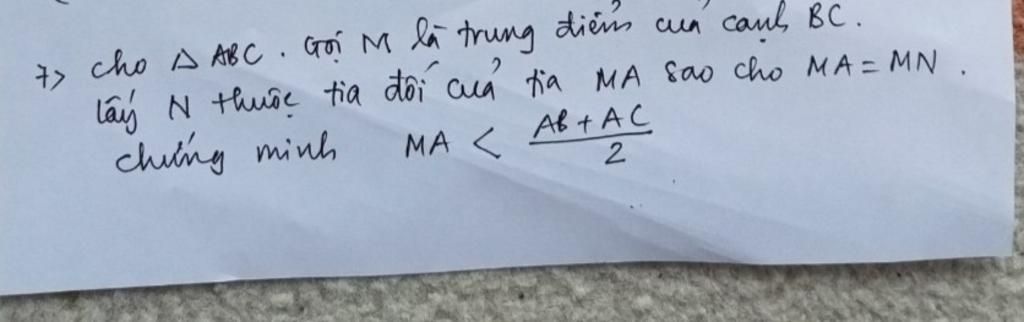 7> cho △ ABC. Gọi M là trung điểm của cạnh BC.
lấy N thuộc tia đối của tia MA sao cho MA = MN.
chứng minh MA < \frac{AB + AC}{2}